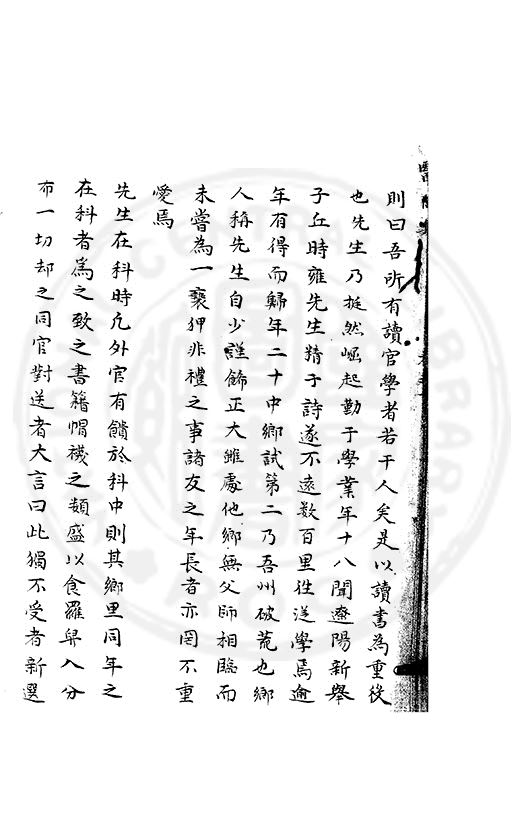 則曰吾所有讀官學者若干人矣是以讀書為重役
也先生乃挺然崛起勤于學業年十八聞遼陽新舉
子丘時雍先生精于詩遂不遠数百里徃送學焉逾
年有得而歸年二十中鄉試第二乃吾州破荒也鄉
人稱先生自少謹飾正大雖處他鄉無父師相臨而
未嘗為一褻狎非禮之事諸友之年長者亦罔不重
愛焉
先生在科時凢外官有饋於科中則其鄉里同年之
在科者為之致之書籍帽襪之類盛以食羅舁入分
布一切却之同官對送者大言曰此獨不受者新選